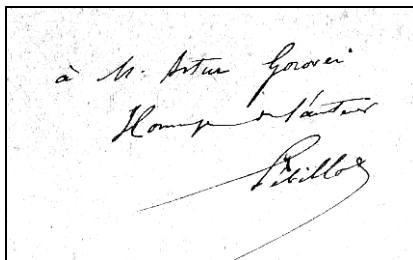 à M. Artur Gorovei
Hommage de l'auteur
P. Sébillot